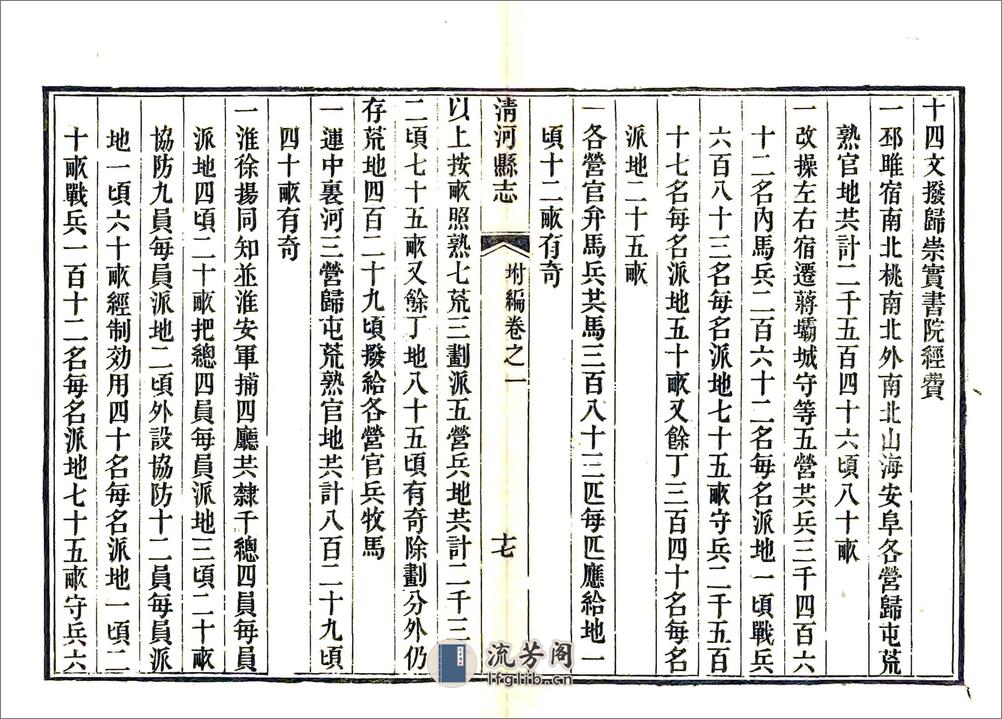 十四文撥歸崇實書院經費
一邳睢宿南北桃南北外南北山海安阜各營歸屯荒
熟官地共計二千五百四十六頃八十畝
一改操左右宿遷蔣壩城守等五營共兵三千四百六
十二名內馬兵二百六十二名每名派地一頃戰兵
六百八十三名每名派地七十五畝守兵二千五百
十七名每名派地五十畝又餘丁三百四十名每名
派地二十五畝
一各營官弁馬兵共馬三百八十三匹每匹應給地一
頃十二畝有奇
清河縣志
附編卷之一
十七
以上按畝照熟七荒三劃派五營兵地共計二千三十
二頃七十五畝又餘丁地八十五頃有奇除劃分外仍
存荒地四百二十九頃撥給各營官兵牧馬
一連中裏河三營歸屯荒熟官地共計八百二十九頃
四十畝有奇
一淮徐揚同知並淮安軍捕四廳共隸千總四員每員
派地四頃二十畝把總四員每員派地三頃二十畝
協防九員每員派地二頃外設協防十二員每員派
地一頃六十畝經制効用四十名每名派地一頃二
十畝戰兵一百十二名每名派地七十五畝守兵六
流芳阁
lfglib.cn